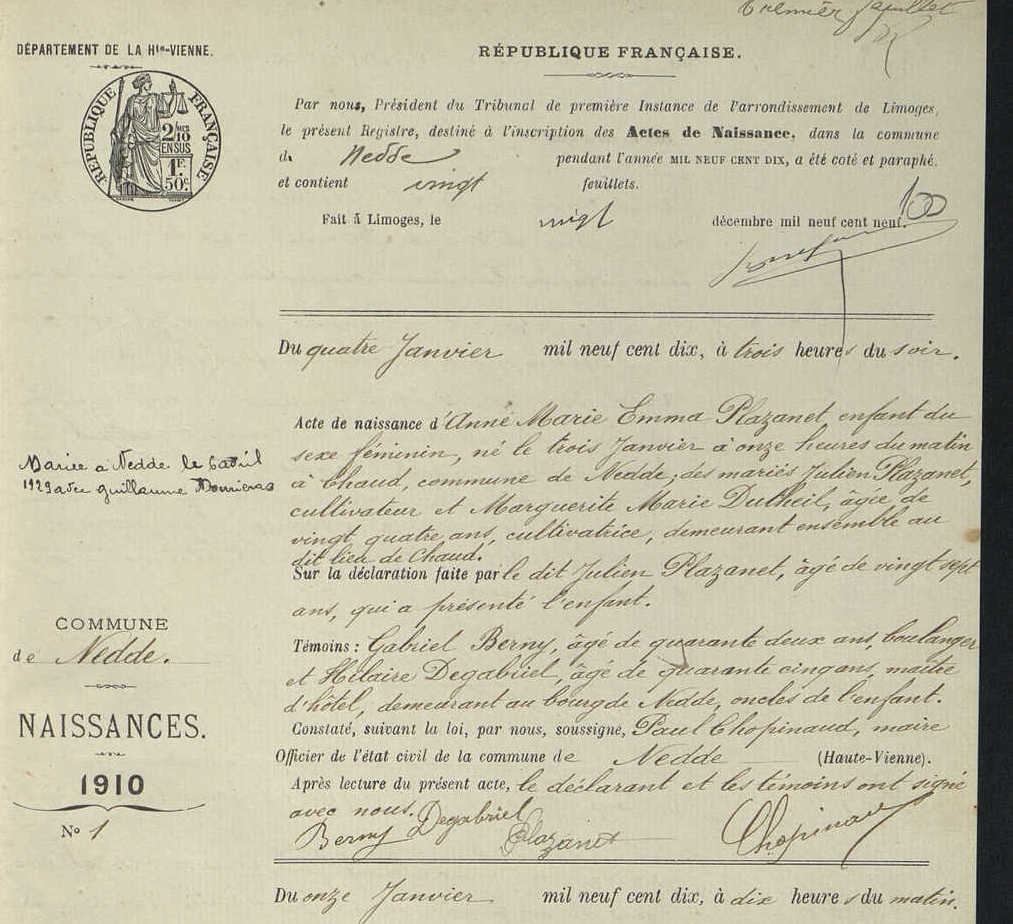 Premier feuillet
DÉPARTEMENT DE LA Hte-VIENNE.
RÉPUBLIQUE FRANÇAISE.
RÉPUBLIQUE FRANÇAISE
2/10 EN SUS
1 F. 50c.
Par nous, Président du Tribunal de première Instance de l'arrondissement de Limoges,
le présent Registre, destiné à l'inscription des Actes de Naissance, dans la commune
de Nedde pendant l'année MIL NEUF CENT DIX, a été coté et paraphé,
et contient vingt feuillets.
Fait à Limoges, le vingt décembre mil neuf cent neuf.
100
Du quatre Janvier mil neuf cent dix, à trois heures du soir.
Acte de naissance d'Anne Marie Emma Plazanet enfant du
sexe féminin, né le trois Janvier à onze heures du matin
à Chaud, commune de Nedde, des mariés Julien Plazanet,
cultivateur et Marguerite Marie Dutheil, âgée de
vingt quatre ans, cultivatrice, demeurant ensemble au
dit lieu de Chaud.
Sur la déclaration faite par le dit Julien Plazanet, âgé de vingt sept
ans, qui a présenté l'enfant.
Témoins : Gabriel Berny, âgé de quarante deux ans, boulanger
et Hilaire Degabriel, âgé de quarante cinq ans, maître
d'hôtel, demeurant au bourg de Nedde, oncles de l'enfant.
Constaté, suivant la loi, par nous, soussigné, Paul Chopinaud, maire
Officier de l'état civil de la commune de Nedde (Haute-Vienne).
Après lecture du présent acte, le déclarant et les témoins ont signé
avec nous.
Berny Degabriel Plazanet Chopinaud
Mariée à Nedde le 6 avril
1929 avec Guillaume
COMMUNE
de Nedde.
NAISSANCES.
1910
No 1
Du onze Janvier mil neuf cent dix, à dix heures du matin.